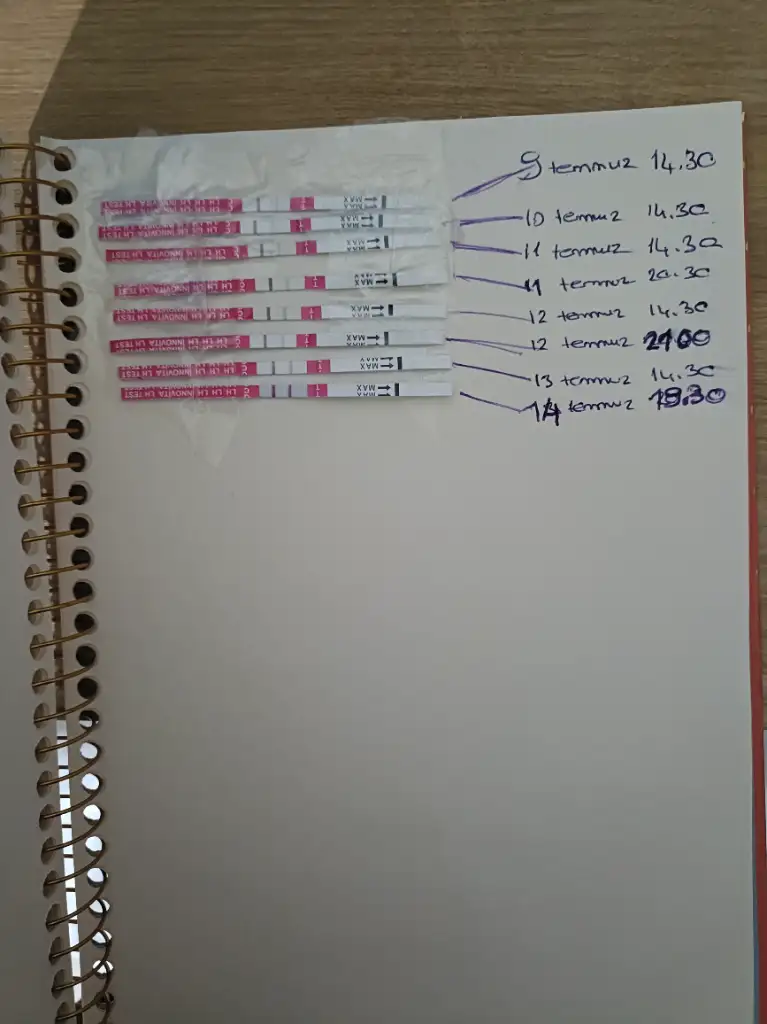 9 temmuz 14.30
INNOVITA LH TEST LH LH LH MAX
10 temmuz 14.30
INNOVITA LH TEST LH LH LH MAX
11 temmuz 14.30
INNOVITA LH TEST LH LH LH MAX
11 temmuz 20.30
INNOVITA LH TEST LH LH LH MAX
12 temmuz 14.30
INNOVITA LH TEST LH LH LH MAX
12 temmuz 2100
INNOVITA LH TEST LH LH LH MAX
13 temmuz 14.30
INNOVITA LH TEST LH LH LH MAX
14 temmuz 19.30
INNOVITA LH TEST LH LH LH MAX